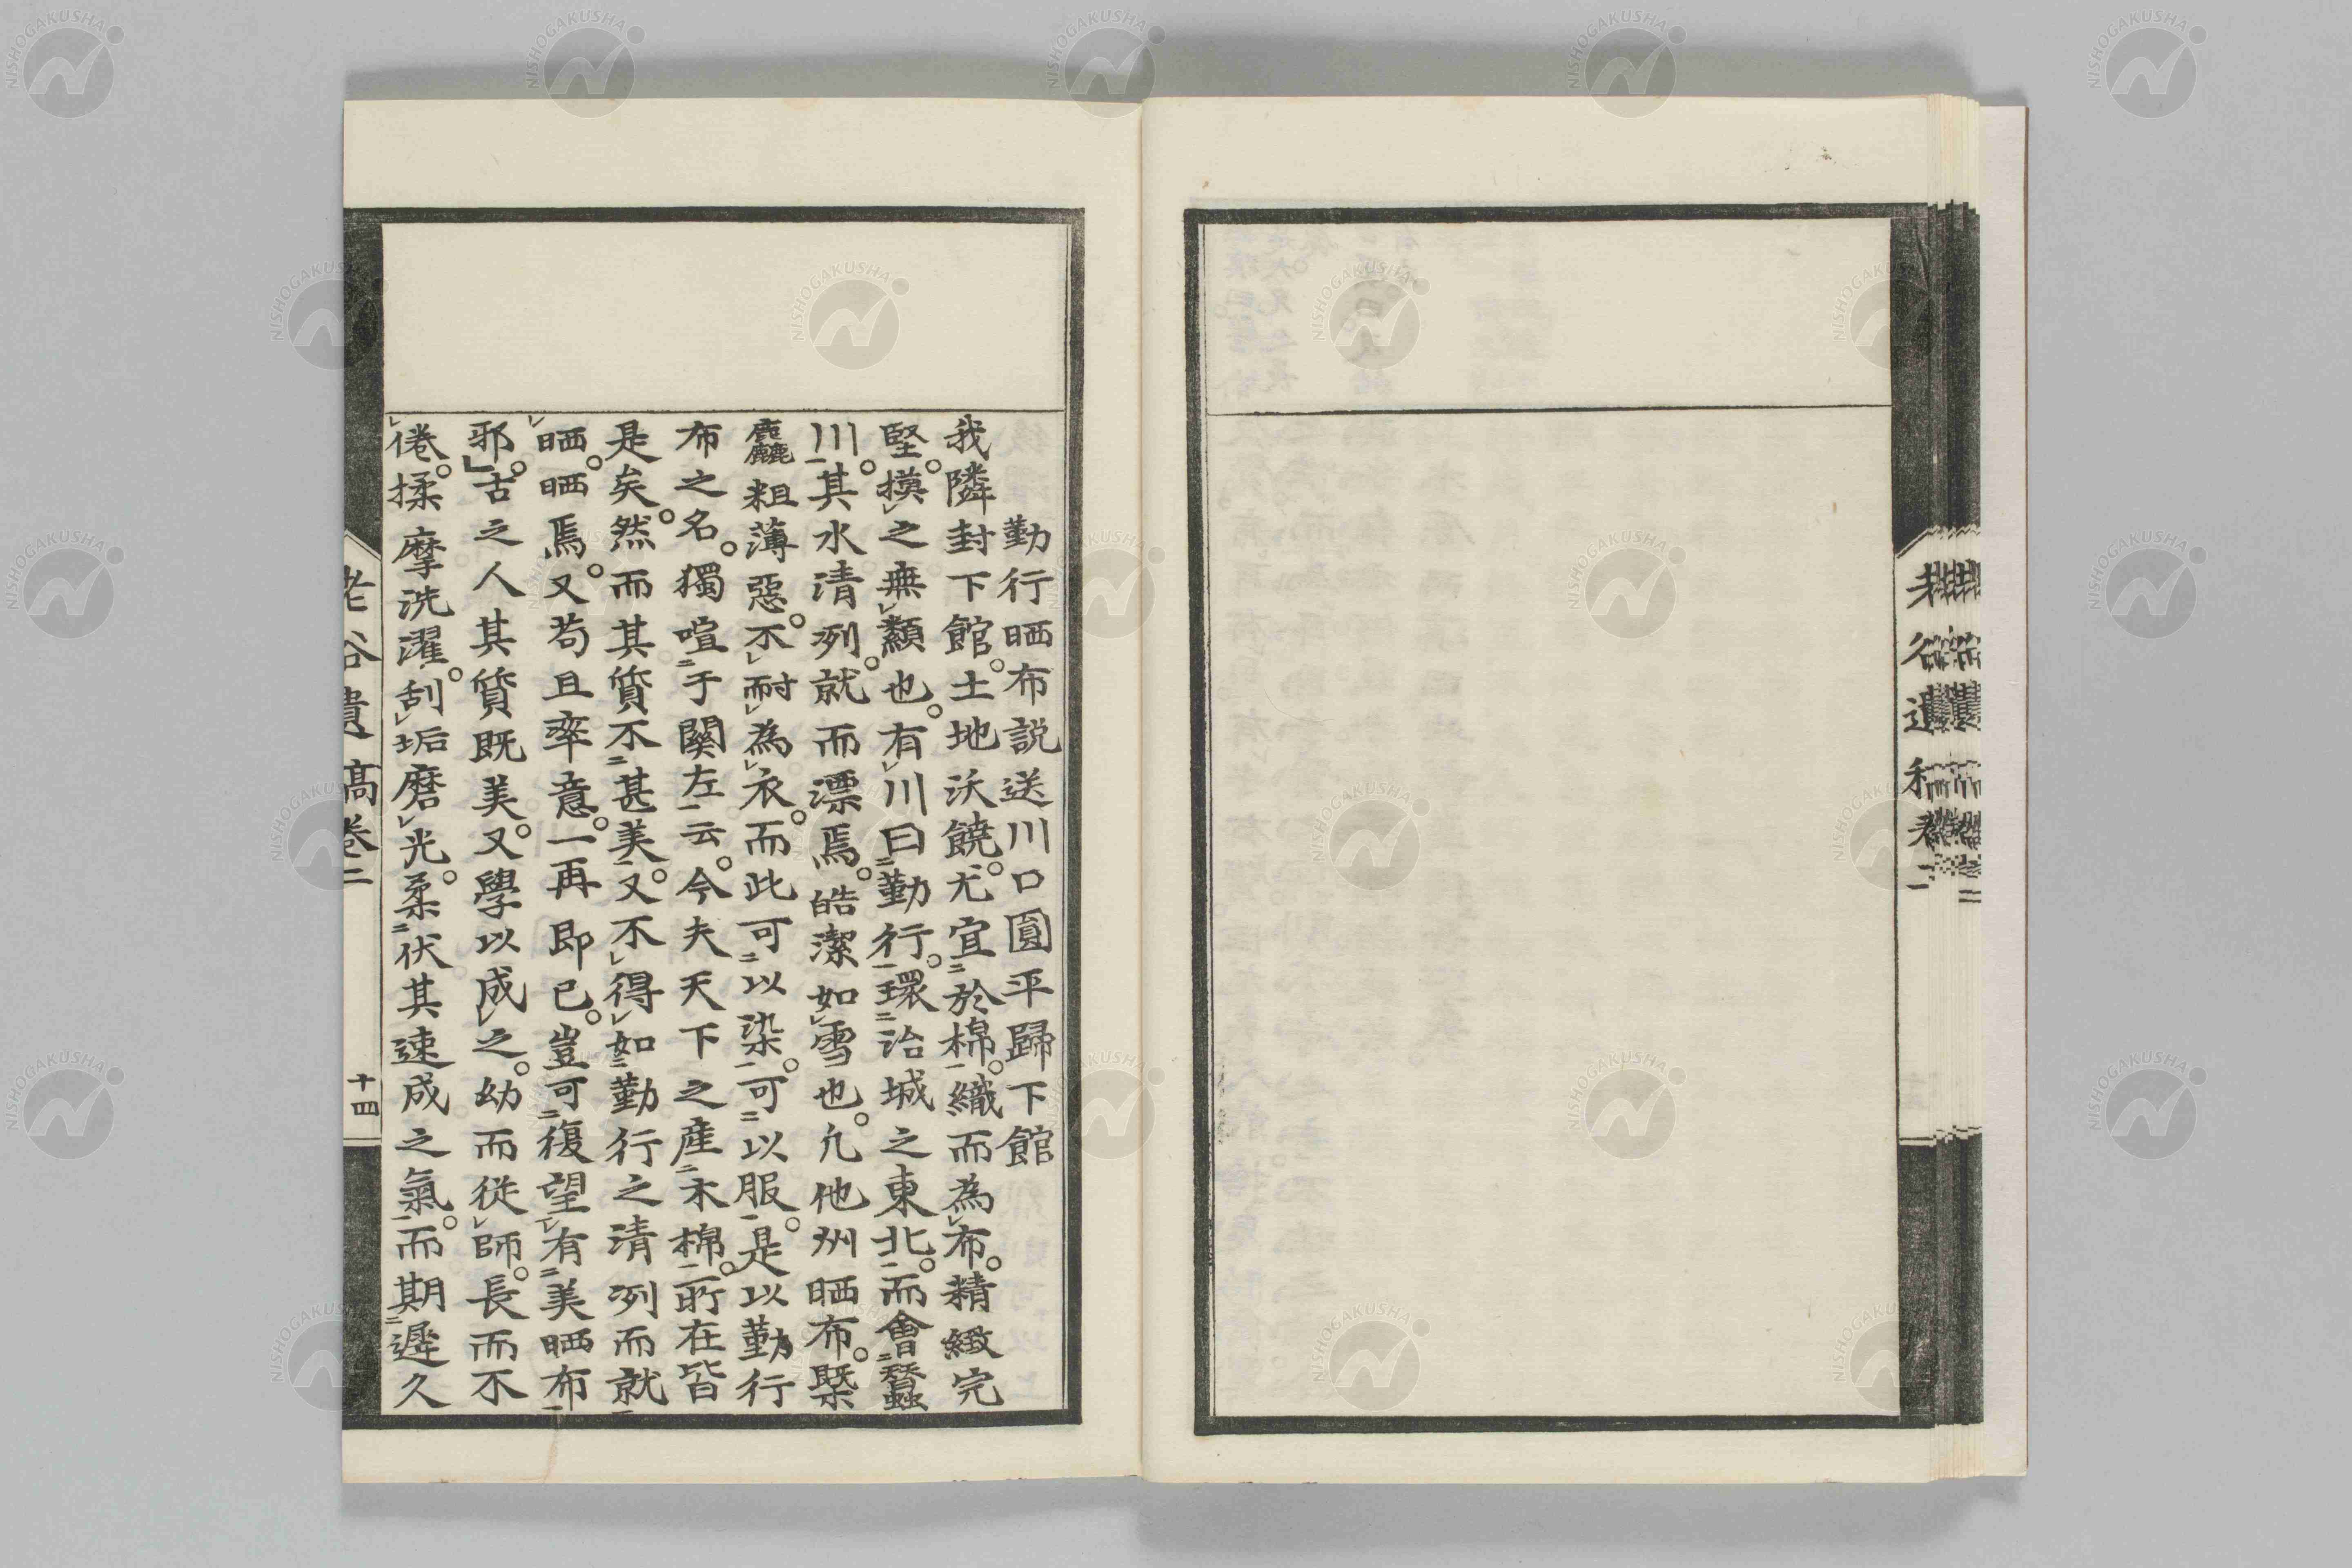 勤行晒布説送川口圓平歸下館
我隣封下館。土地沃饒。尤宜㆓於棉㆒。織而為㆑布。精緻完
堅。摸㆑之無㆑纇也。有㆑川曰㆓勤行㆒。環㆓治城之東北㆒。而會㆓蠶
川㆒。其水清冽。就而漂焉。皓潔如㆑雪也。凢他州晒布。槩
麤粗薄惡。不㆑耐㆑為㆑衣。而此可㆓以染㆒。可㆓以服㆒。是以勤行
布之名。獨喧㆓于關左㆒云。今夫天下之産㆓木棉㆒。所在皆
是矣。然而其質不㆓甚美㆒。又不㆑得㆘如㆓勤行之清冽而就
晒㆖。晒焉。又苟且率意。一再即已。豈可㆔復望㆑有㆓美晒布㆒
邪。」古之人其質既美。又學以成㆑之。幼而從㆑師。長而不
㆑倦。揉摩洗濯。刮㆑垢磨㆑光。柔㆓伏其速成之氣㆒。而期㆓遲久
老谷遺稾卷二
十四
老谷遺稾卷二
NISHOGAKUSHA